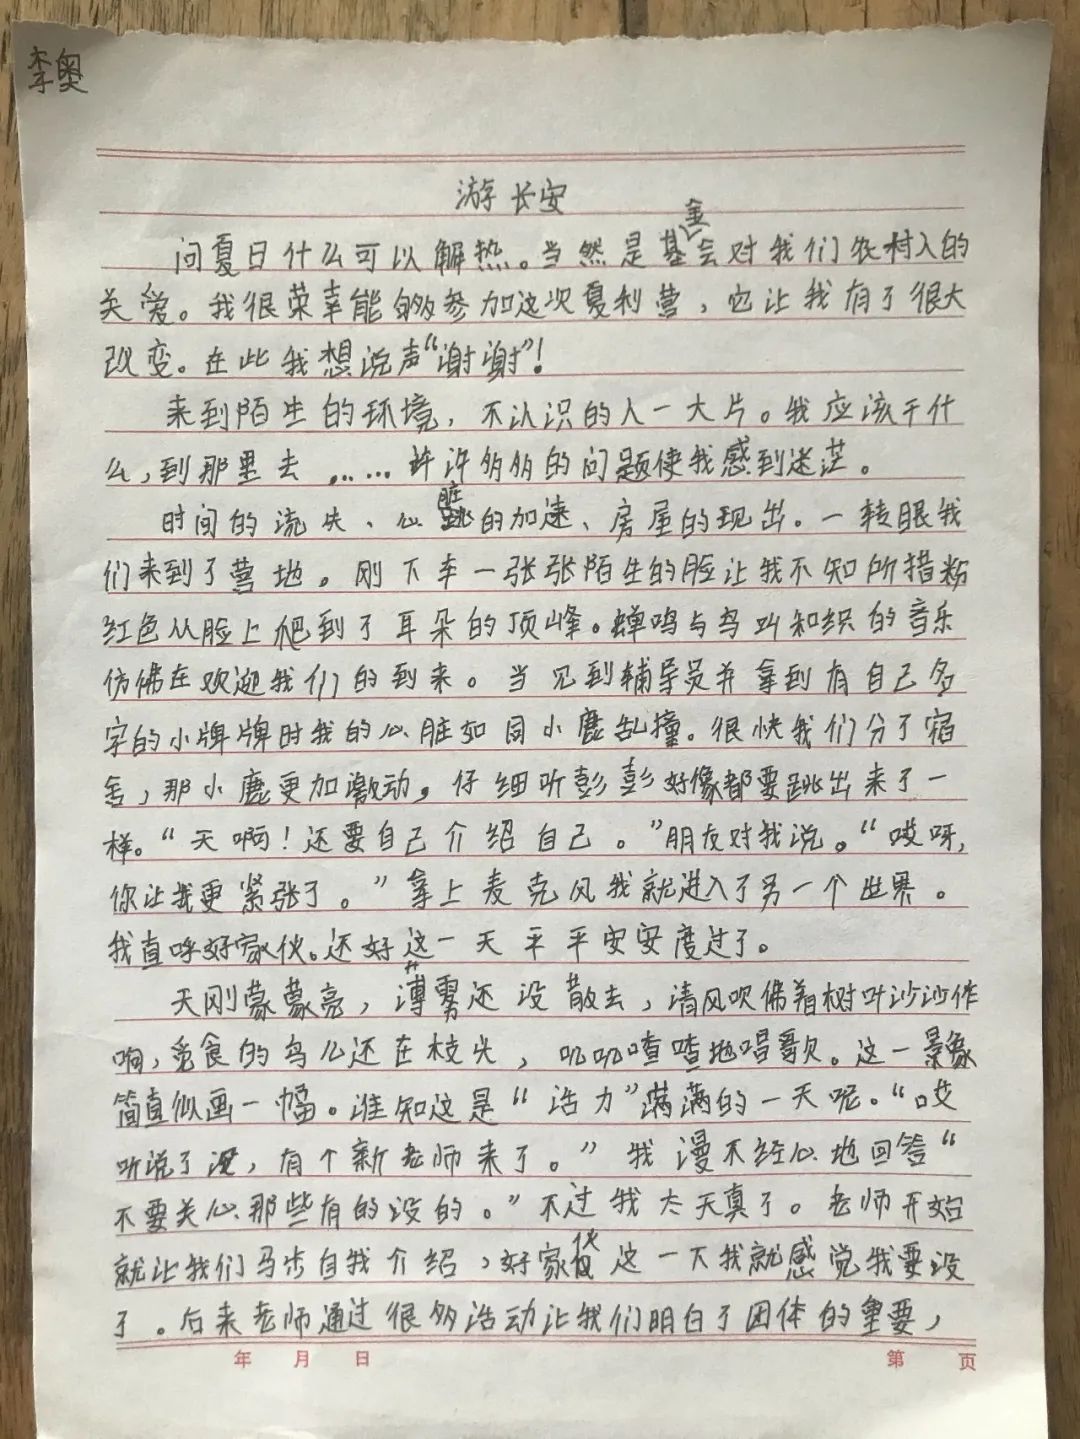 李奥
游长安
问夏日什么可以解热。当然是基金会对我们农村人的
关爱。我很荣幸能够参加这次夏利营，它让我有了很大
改变。在此我想说声“谢谢”！
来到陌生的环境，不认识的人一大片。我应该干什
么，到那里去……许许多多的问题使我感到迷茫。
时间的流失、心脏跳的加速、房屋的现出。一转眼我
们来到了营地。刚下车一张张陌生的脸让我不知所措粉
红色从脸上爬到了耳朵的顶峰。蝉鸣与鸟叫和织的音乐
仿佛在欢迎我们的到来。当见到辅导员并拿到有自己名
字的小牌牌时我的心脏如同小鹿乱撞。很快我们分了宿
舍，那小鹿更加激动。仔细听彭彭好像都要跳出来了一
样。“天啊！还要自己介绍自己。”朋友对我说。“哎呀，
你让我更紧张了。”拿上麦克风我就进入了另一个世界。
我直呼好家伙。还好这一天平平安安度过了。
天刚蒙蒙亮，薄雾还没散去，清风吹佛着树叶沙沙作
响，觅食的鸟儿还在枝头，叽叽喳喳地唱歌。这一景象
简直似画一幅。谁知这是“活力”满满的一天呢。“哎
听说了没，有个新老师来了。”我漫不经心地回答“
不要关心那些有的没的。”不过我太天真了。老师开始
就让我们马步自我介绍，好家伙这一下我就感觉我要没
了。后来老师通过很多活动让我们明白了团体的重要，
年 月 日
第 页